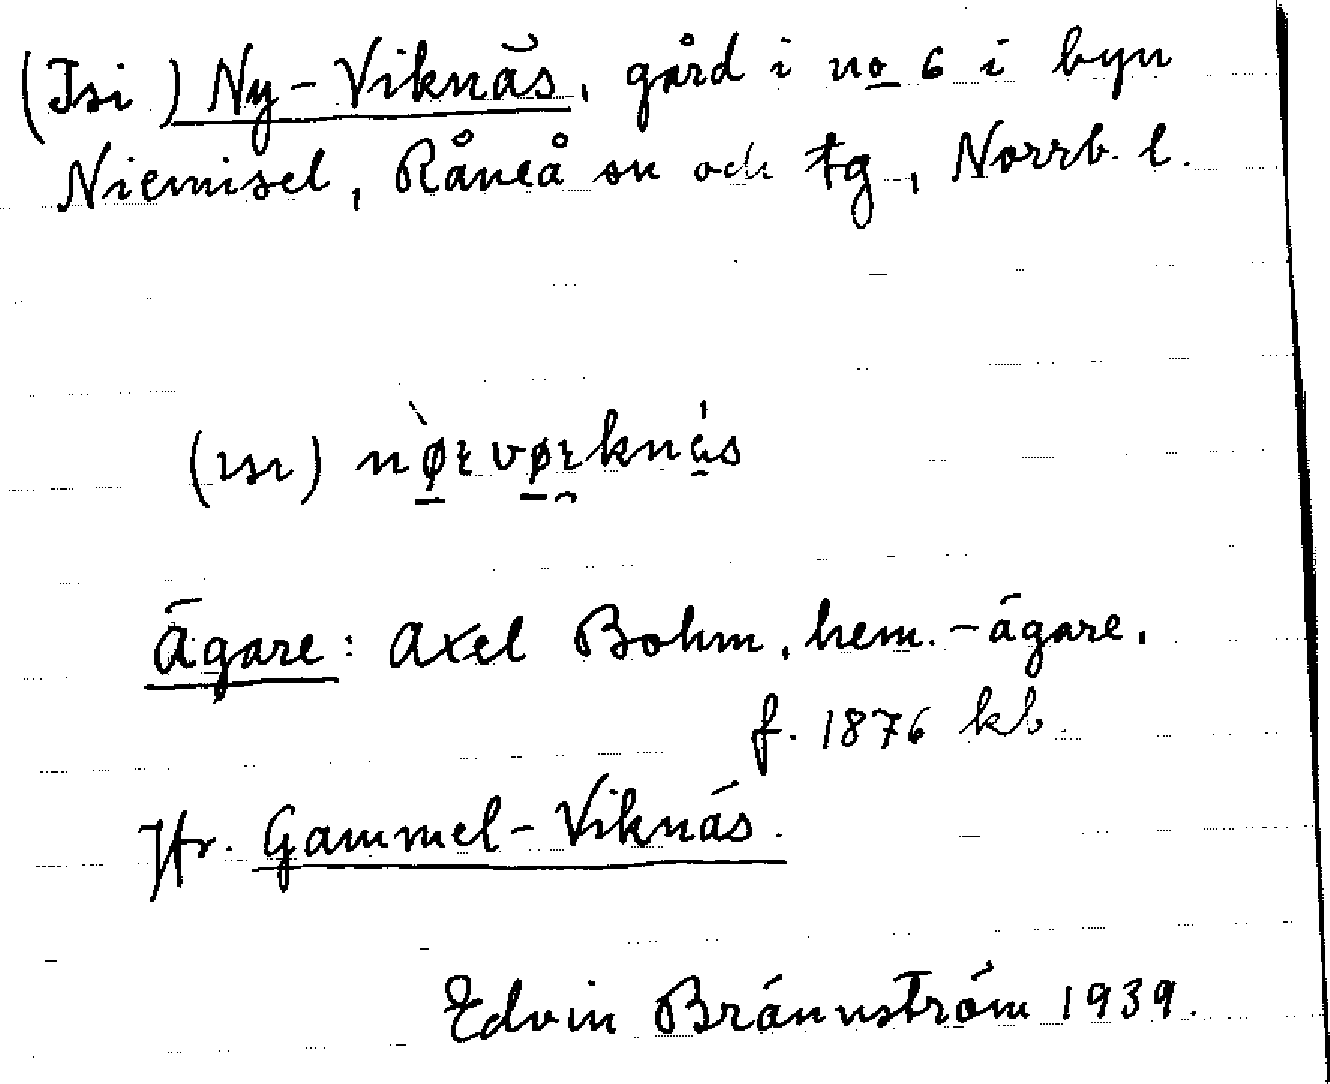 (Isi) Ny-Viknäs, gård i no 6 i byn
Niemisel, Råneå sn och tg, Norrb. l.
Ägare: Axel Bohm, hem.-ägare,
f. 1876 kb.
Jfr. Gammel-Viknäs.
Edvin Brännström 1939.